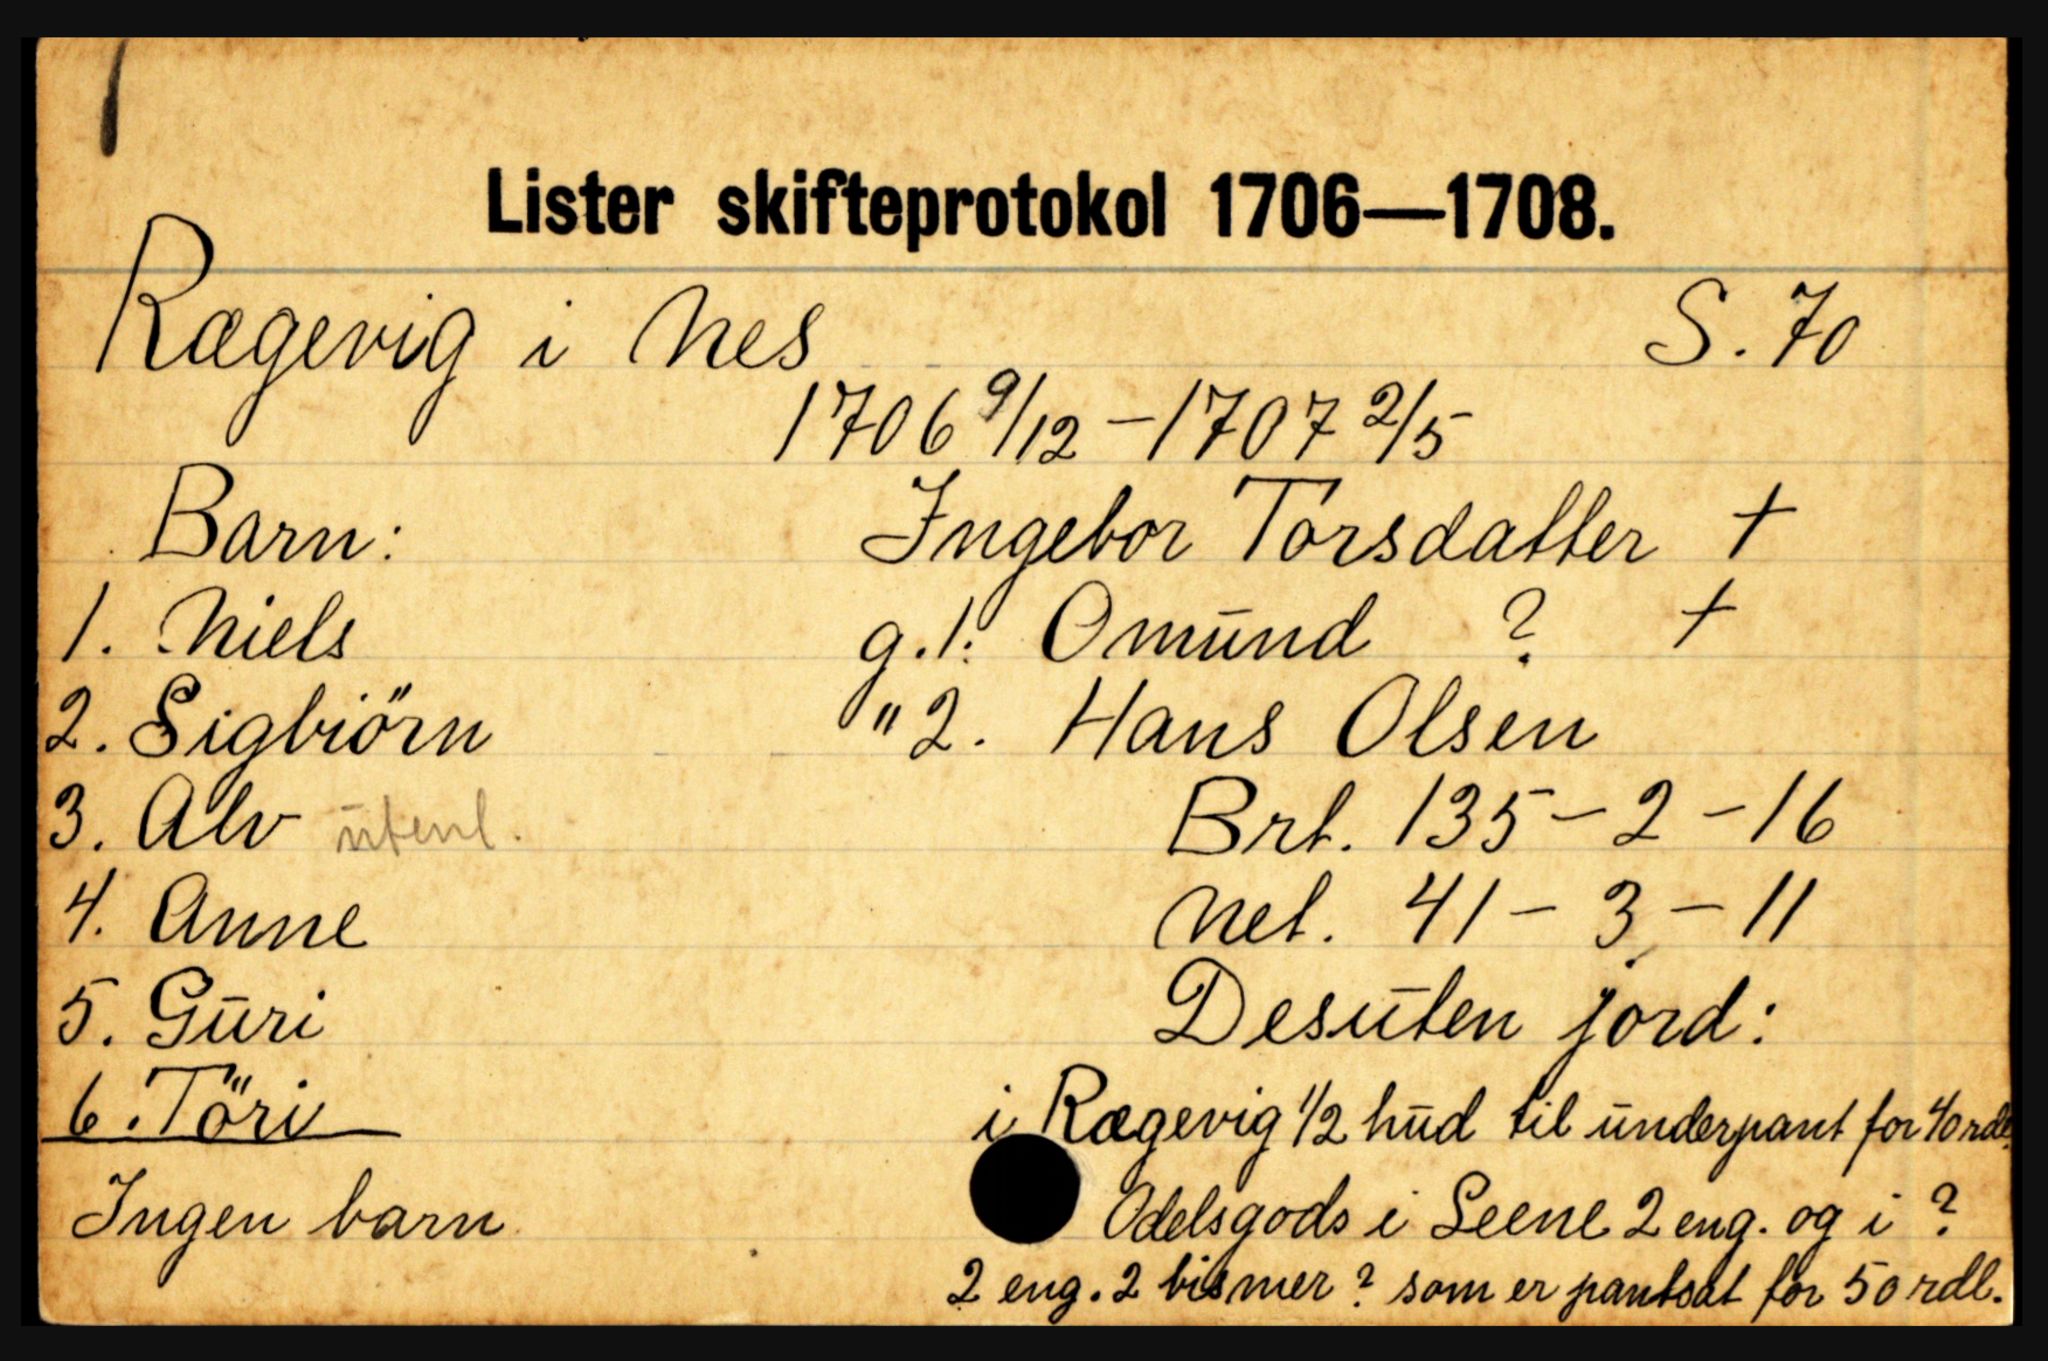 Lister skifteprotokol 1706—1708.
Rægevig i Nes S. 70
1706 9/12 - 1707 2/5
Barn:
1. Niels
2. Sigbiörn
3. Alv utenl.
4. Anne
5. Guri
6. Töri
Ingen barn
Ingebor Torsdatter +
g. 1: Omund ? +
" 2. Hans Olsen
Brt. 135 - 2 - 16
Net. 41 - 3 - 11
Desuten jord:
i Rægevig 1/2 hud til underpant for 40 rdl.
Odelsgods i Leene 2 eng. og i ?
2 eng. 2 bismer ? som er pantsat for 50 rdl.